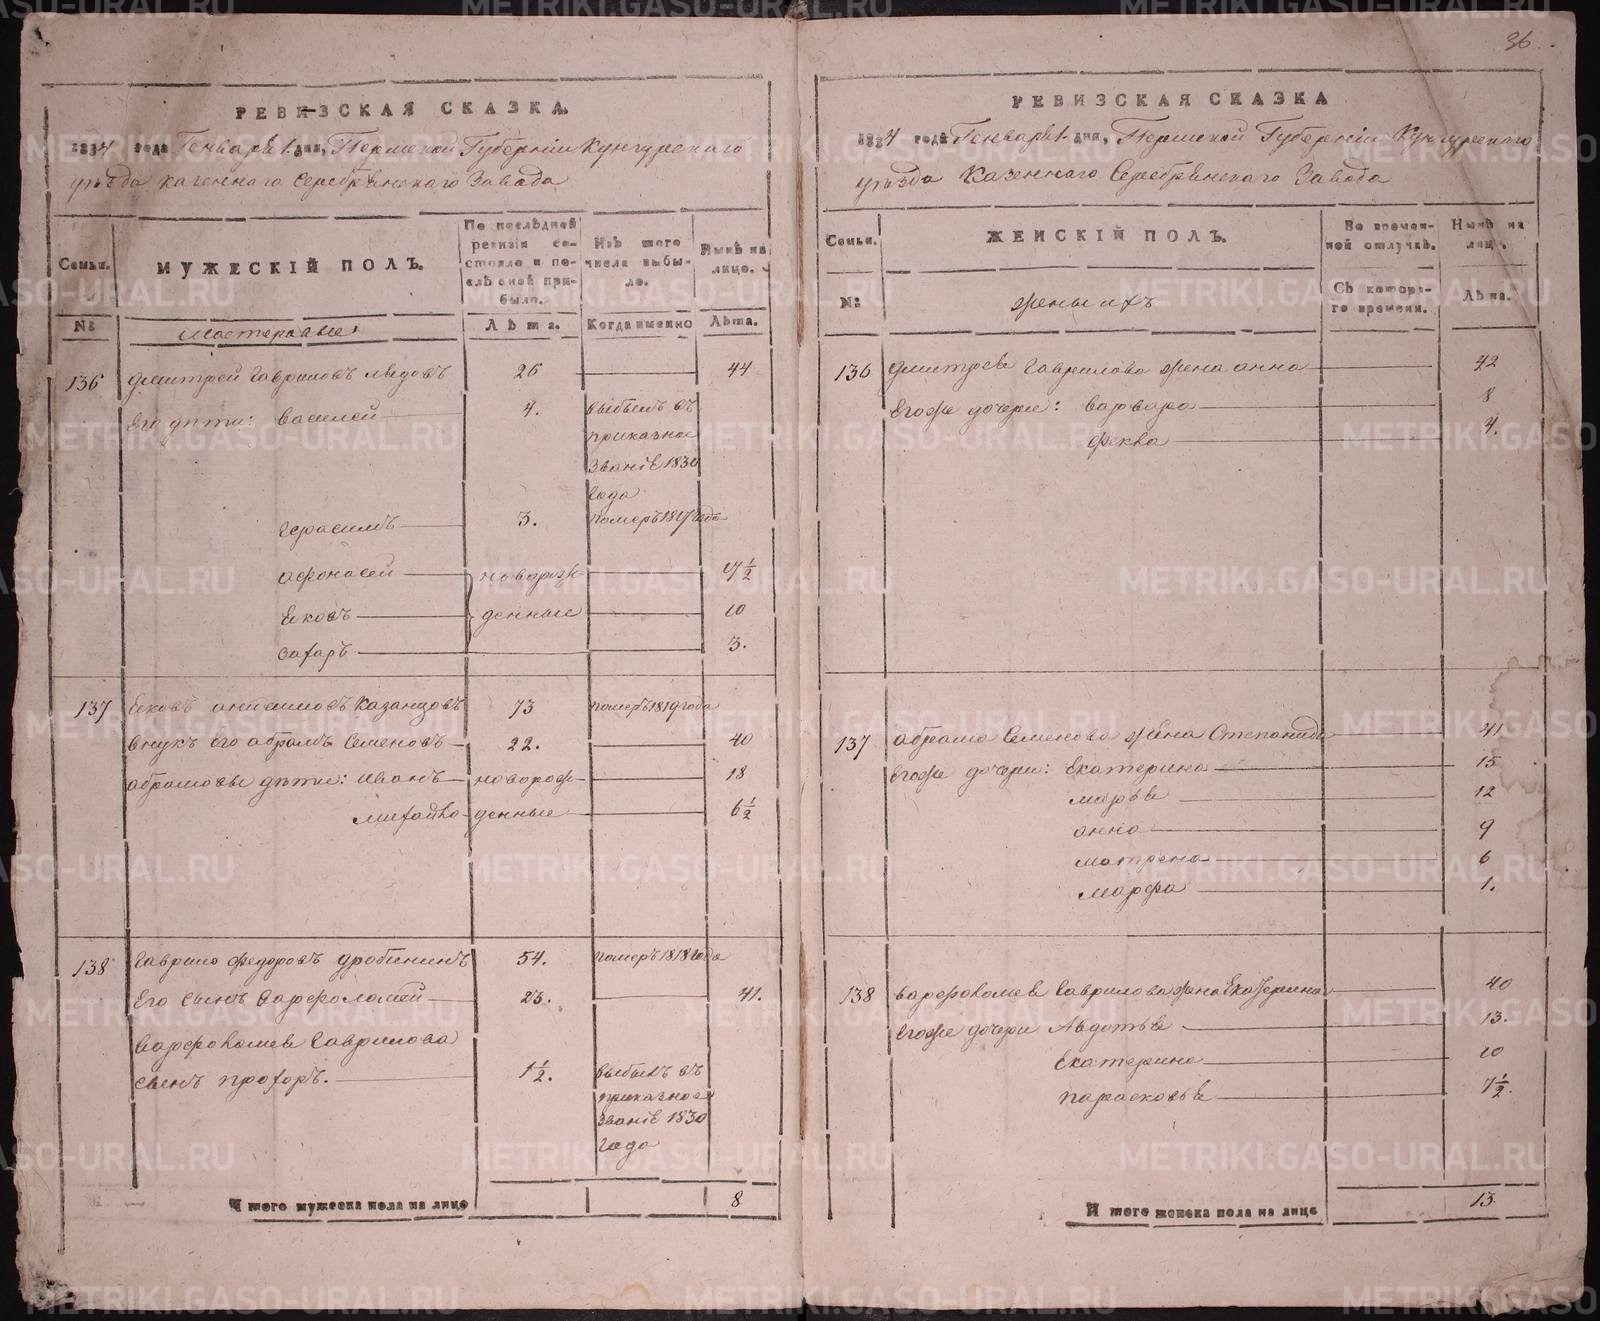 36.
РЕВИЗСКАЯ СКАЗКА.
1834 года Генваря 1. дня, Пермской Губернiи Кунгурскаго
уѣзда казеннаго Серебрянскаго Завода
Семьи.
МУЖЕСКIЙ ПОЛЪ.
По послѣдней ревизiи состояло и послѣ оной прибыло.
Изъ того числа выбыло.
Нынѣ на лицо.
№
мастеровые:
Лѣта.
Когда именно
Лѣта.
136 дмитрей Гавриловъ 26 44
Его дѣти: василей 4. выбылъ въ
приказное
званiе 1830
года
герасимъ 3. померъ 1817 года
афонасей новорож- 17 1/2
Яковъ денные 10
захаръ 3.
137 Яковъ анисимовъ Казанцовъ 73 померъ 1819 года
внукъ Его абрамъ Семеновъ 22. 40
абрамовы дѣти: Иванъ новорож- 18
михайло денные 6 1/2
138 Гаврило федоровъ дробининъ 54. померъ 1818 года
Его сынъ варфоломей 23. 41.
варфоломея Гаврилова
сынъ прохоръ. 1 1/2. выбылъ въ
приказное
званiе 1830
года
Итого мужеска пола на лицо 8
РЕВИЗСКАЯ СКАЗКА
1834 года Генваря 1. дня, Пермской Губернiи Кунгурскаго
уѣзда казеннаго Серебрянскаго Завода
Семьи.
ЖЕНСКIЙ ПОЛЪ.
Во временной отлучкѣ.
Нынѣ на лицо.
№
жены ихъ
Съ котораго времени.
Лѣта.
136 дмитрея Гаврилова жена анна 42
Егоже дочери: варвара 8
фекла 4.
137 абрама Семенова жена Степанида 41
Егоже дочери: Екатерина 15
марья 12
анна 9
матрена 6
марфа 1.
138 варфоломея Гаврилова жена Екатерина 40
Егоже дочери Авдотья 13.
Екатерина 10
парасковья 7 1/2.
Итого женска пола на лицо 13
METRIKI.GASO-URAL.RU